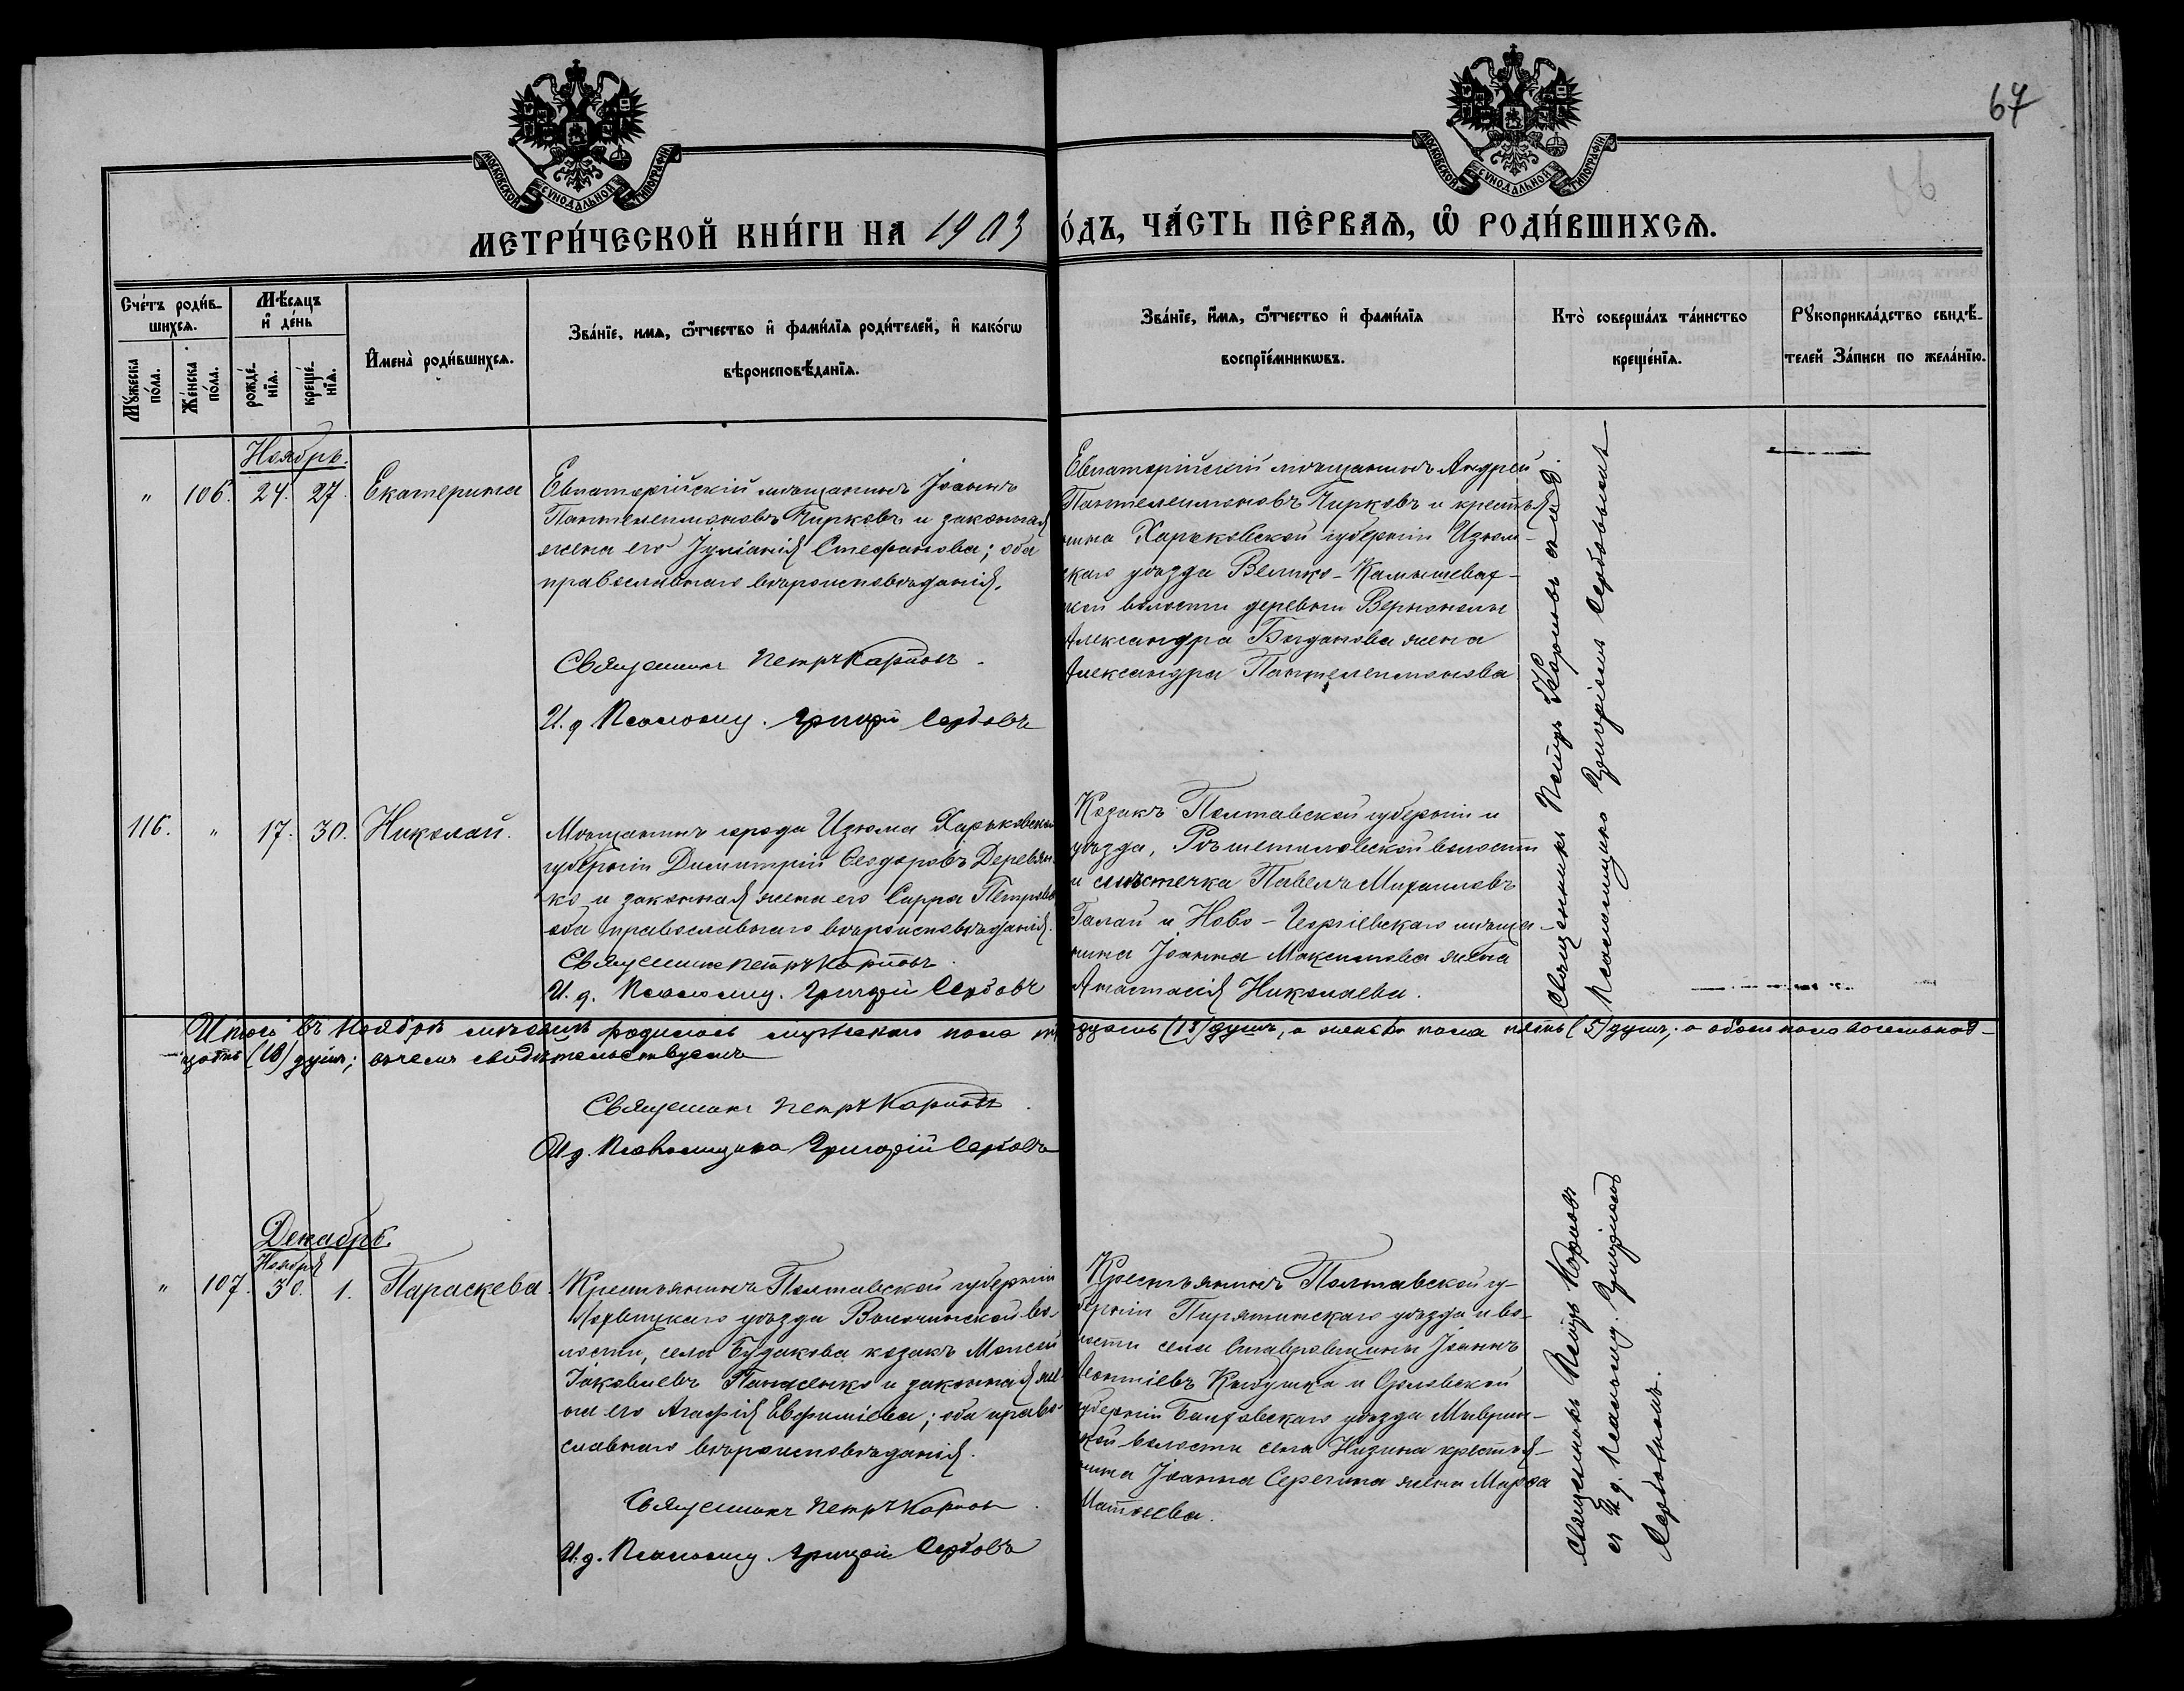 67
МОСКОВСКОЙ СѴНОДАЛЬНОЙ ТИПОГРАФІИ.
МОСКОВСКОЙ СѴНОДАЛЬНОЙ ТИПОГРАФІИ.
МЕТРИ́ЧЕСКОЙ КНИ́ГИ НА 1903
О́ДЪ, ЧА́СТЬ ПЕ́РВАѦ, Ѡ҆ РОДИ́ВШИХСѦ.
Сче́тъ роди́в-
шихся.
Мꙋ́жеска по́ла.
Же́нска по́ла.
Мѣ́сяцъ
и҆ де́нь
рожде́-
нїѧ.
креще́-
нїѧ.
И҆мена̀ роди́вшихсѧ.
Зва́нїе, имѧ, ѻ҆́тчество и҆ фами́лїѧ роди́телей, и҆ како́гѡ
вѣроисповѣ́данїѧ.
Зва́нїе, и҆́мѧ, ѻ҆́тчество и҆ фами́лїѧ
воспрїе́мникѡвъ.
Кто̀ соверша́лъ та́инство
креще́нїѧ.
Рꙋкоприкла́дство свидѣ́-
телей За́писи по жела́нїю.
Ноябрь.
" 106. 24. 27. Екатерина
Евпаторійскій мѣщанинъ Іоаннъ
Пантелеимоновъ Чирковъ и законная
жена его Іуліанія Стефанова; оба
православнаго вѣроисповѣданія.
Священникъ Петръ Карповъ.
И. д. Псаломщ. Григорій Сербовъ
Евпаторійскій мѣщанинъ Андрей
Пантелеимоновъ Чирковъ и крестья
нина Харьковской губерніи Изюм-
скаго уѣзда Велико-Камышевах-
ской волости деревни
Александра Богданова жена
Александра Пантелеимонова
Священникъ Петръ Карповъ с и. д.
Псаломщика Григоріемъ Сербовымъ
116. " 17. 30. Николай.
Мѣщанинъ города Изюма Харьковской
губерніи Димитрій Ѳеодоровъ Деревян-
ко и законная жена его Сарра Петрова
оба православнаго вѣроисповѣданія.
Священникъ Петръ Карповъ.
И. д. Псаломщ. Григорій Сербовъ
Козакъ Полтавской губерніи и
уѣзда, Рѣшетиловской волости
и мѣстечка Павелъ Михаиловъ
Галай и Ново-Георгіевскаго мѣща-
нина Іоанна Максимова жена
Анастасія Николаева.
Итого въ Ноябрѣ мѣсяцѣ родилось мужескаго пола три
надцать (13) душъ, а женска пола пять (5) душъ; а обоего пола восемьнад-
цать (18) душъ; въ чемъ свидѣтельствуемъ
Священникъ Петръ Карповъ.
И. д. Псаломщика Григорій Сербовъ
Декабрь.
Ноября
" 107. 30. 1. Параскева.
Крестьянинъ Полтавской губерніи
уѣзда во-
лости, села Будакова козакъ Моисей
Іаковлевъ Панасенко и законная же-
на его Агафія Евфиміева; оба право-
славнаго вѣроисповѣданія.
Священникъ Петръ Карповъ.
И. д. Псаломщ. Григорій Сербовъ
Крестьянинъ Полтавской гу-
берніи Пирятинскаго уѣзда и во-
лости села Іоаннъ
Леонтіевъ и Орловской
губерніи уѣзда
кой волости села крестья-
нина Іоанна Серегина жена Марѳа
Матѳеева.
Священникъ Петръ Карповъ
съ И. д. Псаломщ. Григоріемъ
Сербовымъ.